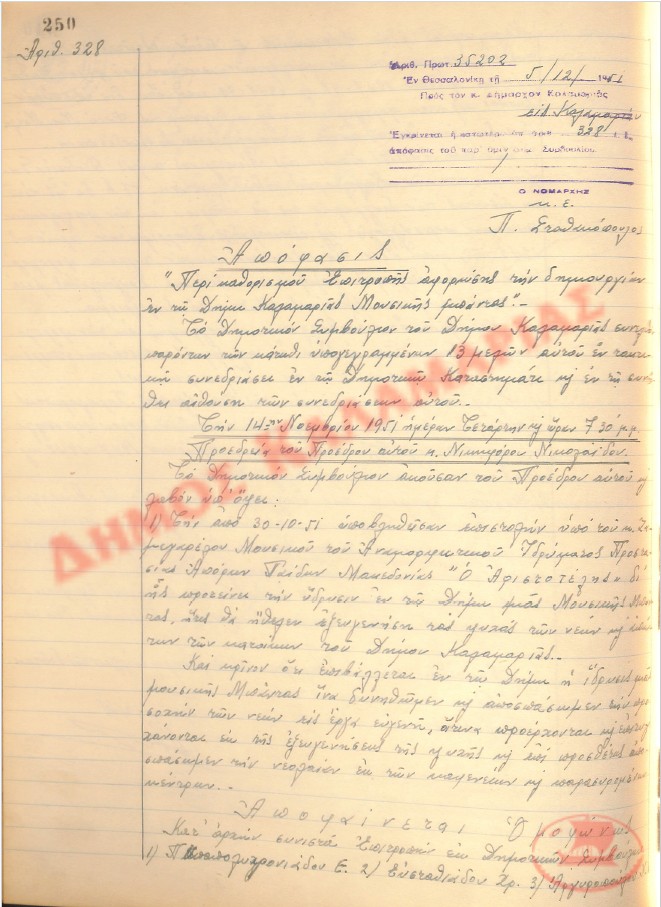 250
Ἀριθ. 328
Ἀριθ. Πρωτ 35202
Ἐν Θεσσαλονίκῃ τῇ 5/12/1951
Πρὸς τὸν κ. Δήμαρχον Καλαμαριᾶς
εἰς Καλαμαριάν
Ἐγκρίνεται ἡ ὑπ' ἀριθ. 328
ἀπόφασις τοῦ Συμβουλίου
Ὁ ΝΟΜΑΡΧΗΣ
κ. ε.
Π. Σταθακόπουλος
Ἀπόφασις
"Περὶ καθορισμοῦ Ἐπιτροπῆς ἀφορώσης τὴν δημιουργίαν
ἐν τῷ Δήμῳ Καλαμαριᾶς Μουσικῆς μπάντας".-
Τὸ Δημοτικὸν Συμβούλιον τοῦ Δήμου Καλαμαριᾶς
παρόντων τῶν κάτωθι ὑπογεγραμμένων 13 μελῶν αὐτοῦ ἐν τακτι-
κῇ συνεδριάσει ἐν τῷ Δημοτικῷ Καταστήματι κ ἐν τῇ συνή-
θει αἰθούσῃ τῶν συνεδριάσεων αὐτοῦ.-
Τὴν 14ην Νοεμβρίου 1951 ἡμέραν Τετάρτην κ ὥραν 7.30 μ.μ.
Προεδρίᾳ τοῦ Προέδρου αὐτοῦ κ. Νικηφόρου Νικολαΐδου.
Τὸ Δημοτικὸν Συμβούλιον ἀκοῦσαν τοῦ Προέδρου αὐτοῦ κ
λαβὸν ὑπ' ὄψει:
1) Τὴν ἀπὸ 30-10-51 ὑποβληθεῖσαν ἐπιστολὴν ὑπὸ τοῦ κ.
Μουσικοῦ τοῦ Ἀναμορφωτικοῦ Ἱδρύματος Προστα-
σίας Ἀπόρων Παίδων Μακεδονίας "Ὁ Ἀριστοτέλης" δι'
ἧς προτείνει τὴν ἵδρυσιν ἐν τῷ Δήμῳ μιᾶς Μουσικῆς Μπάν-
τας, ἥτις θὰ ἤθελεν ἐξευγενήσῃ τὰς ψυχὰς τῶν νέων κ
τῶν κατοίκων τοῦ Δήμου Καλαμαριᾶς.-
Καὶ κρῖνον ὅτι ἐπιβάλλεται ἐν τῷ Δήμῳ ἡ ἵδρυσις μιᾶς
μουσικῆς Μπάντας ἵνα δυνηθῶμεν κ ἀποσπάσωμεν τὴν προ-
σοχὴν τῶν νέων εἰς ἔργα εὐγενῆ, ἅτινα προέρχονται κ
ἐκ τῆς ἐξευγενήσεως τῆς ψυχῆς κ ἀπο-
σπάσωμεν τὴν νεολαίαν ἐκ τῶν καφενείων κ
κέντρων.-
Ἀποφαίνεται Ὁμοφώνως
Κατ' ἀρχὴν συνιστᾷ Ἐπιτροπὴν ἐκ Δημοτικῶν Συμβούλων
1) Ε. 2) Εὐσταθιάδου Χρ. 3)
ΔΗΜΟΣ ΚΑΛΑΜΑΡΙΑΣ